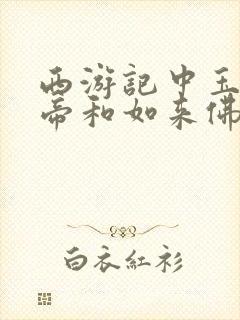 西游記中玉
帝和如来佛
白衣紅衫